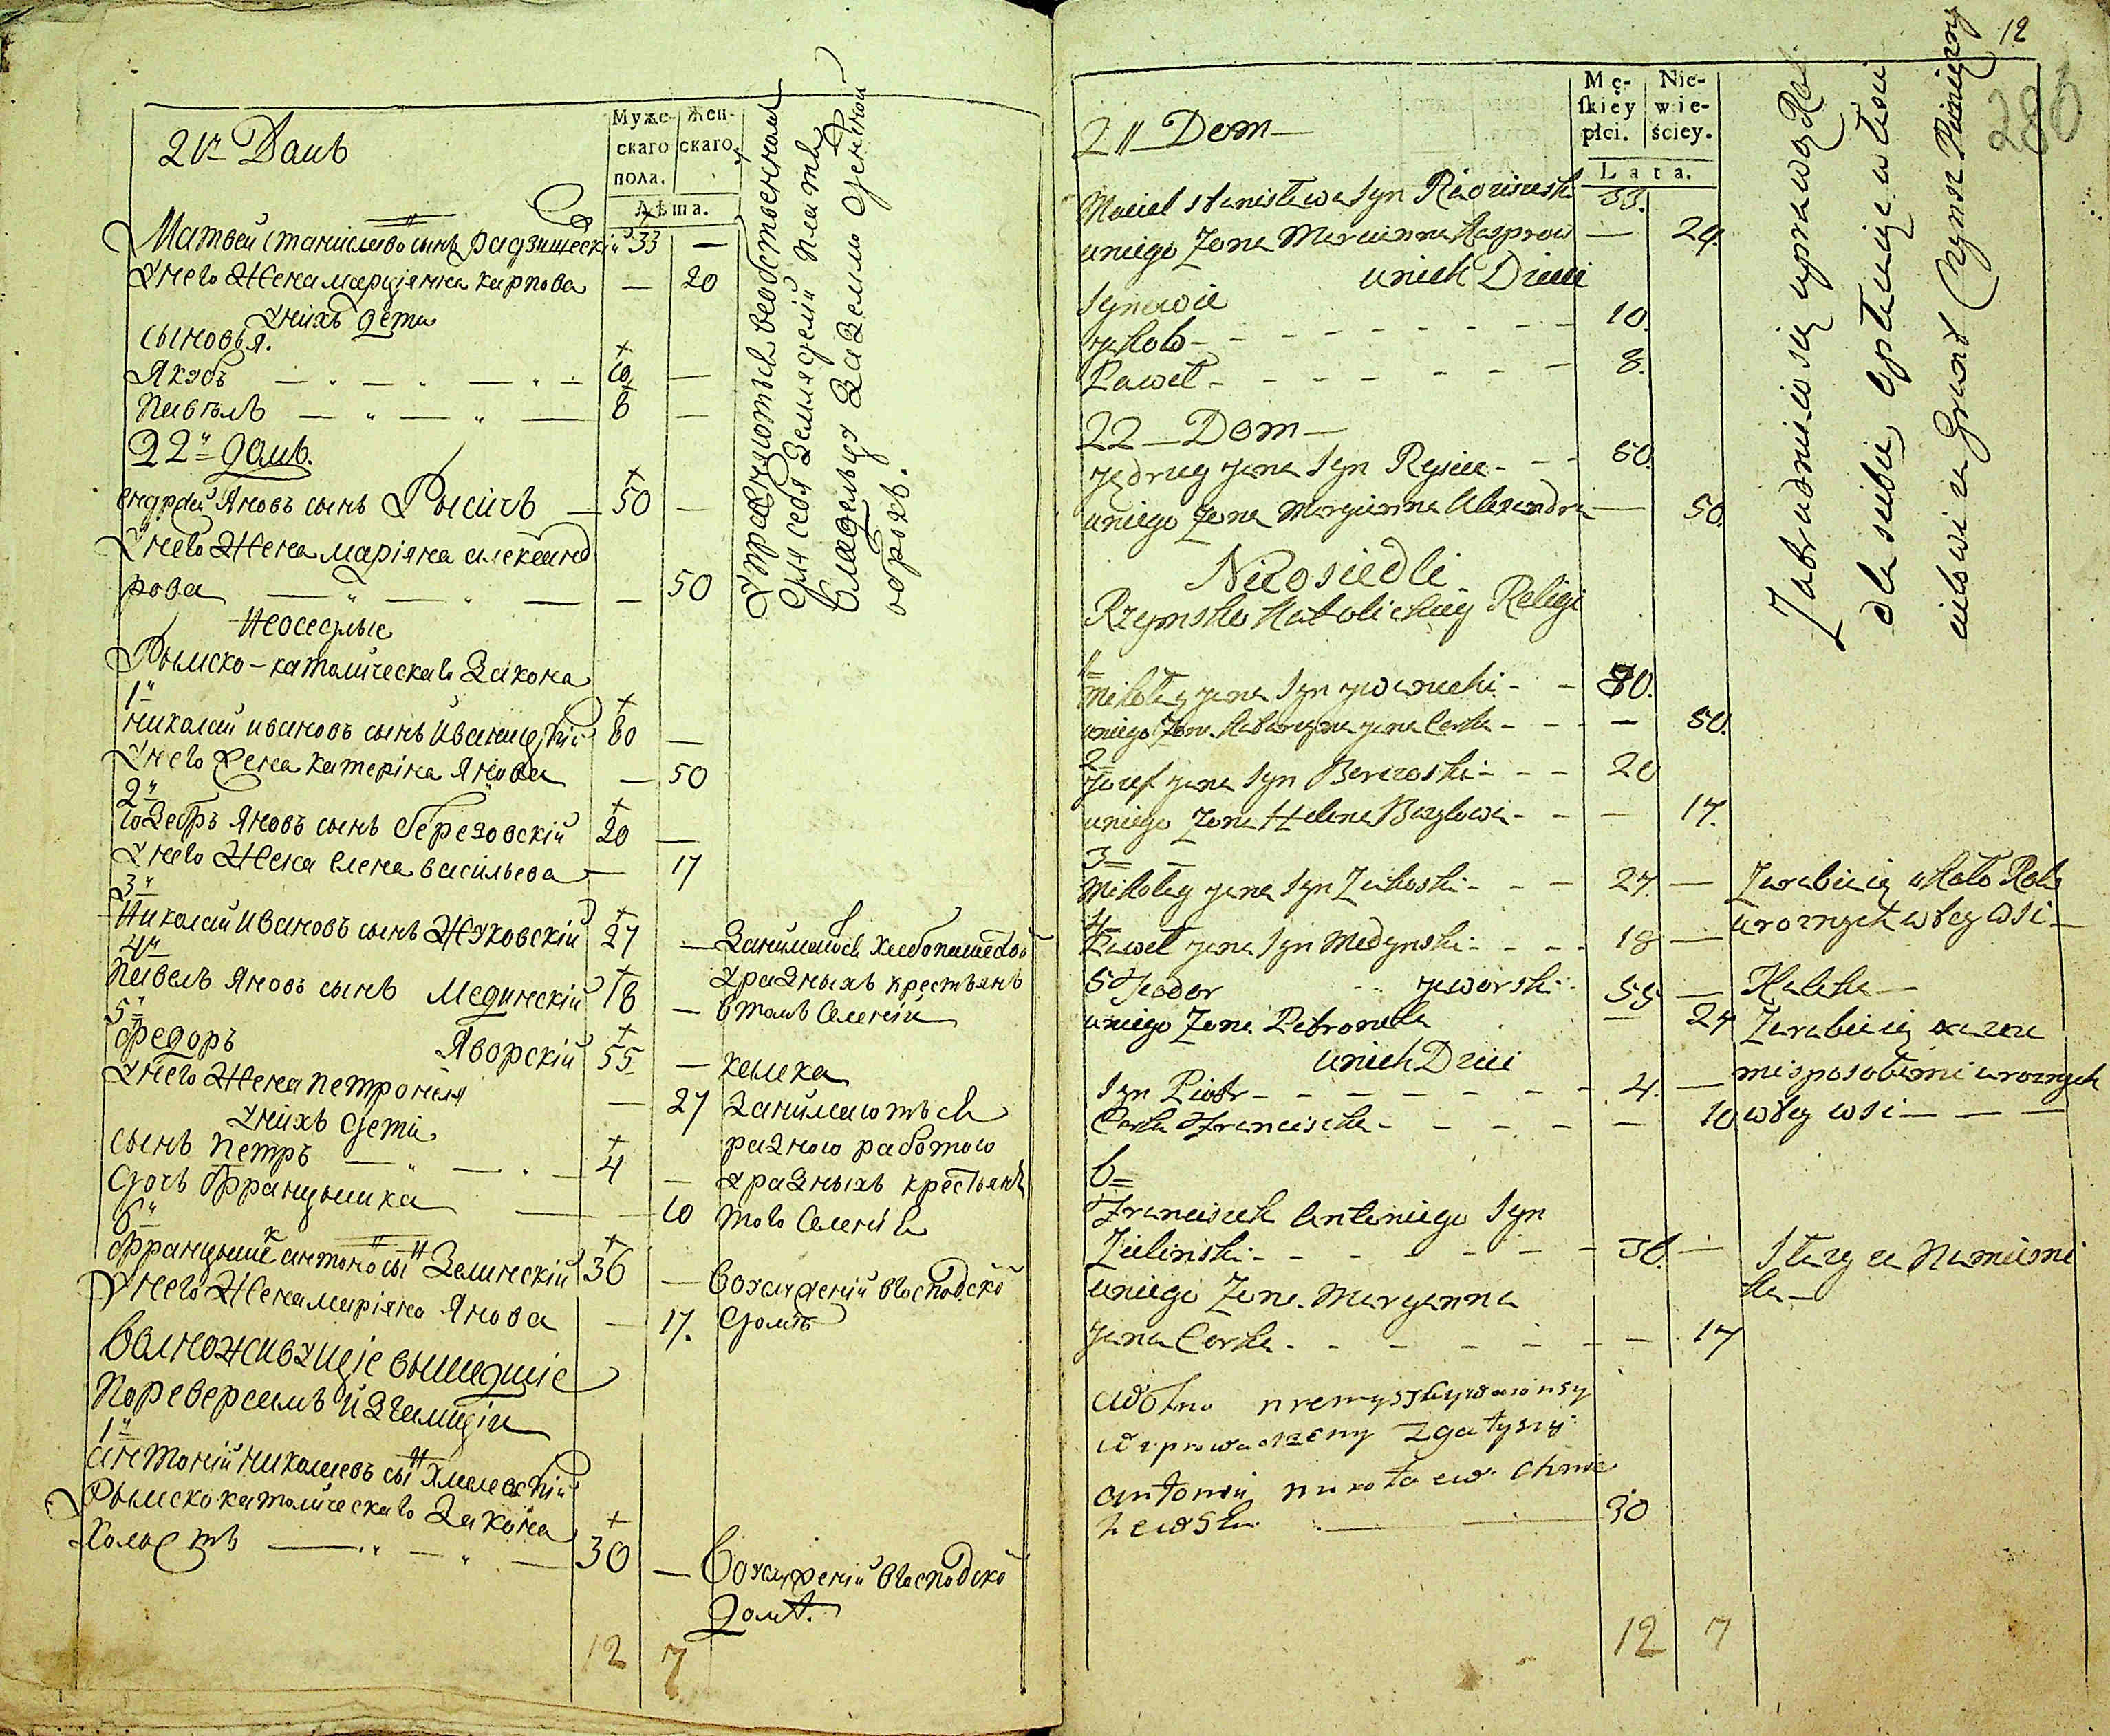 21й Домъ
Муже-
скаго
пола.
Жен-
скаго
Лѣта.
Матвей Станиславо сынъ Радзишескій 33 —
У него Жена Марціянна Карпова — 20
У нихъ дети
Сыновья.
Якубъ 10 —
Павелъ 8 —
22й домъ.
Яновъ сынъ Рысичъ — 50 —
У него Жена Маріяна Александ
рова — 50
Неоседлые
Рымско-католическаго Закона
1й
Николай Ивановъ сынъ 80 —
У него Жена Катеріна Янова — 50
2й
Яновъ сынъ Березовскій 20 —
У него Жена Елена Васильева — 17
3й
Николай Ивановъ сынъ Жуковскій 27 —
4й
Павелъ Яновъ сынъ Мединскій 18 —
5й
Федоръ Яворскій 55 —
У него Жена Петронеля — 27
У нихъ дети
Сынъ Петръ 4 —
Дочъ Францышка — 10
6й
Францышк Антоно сы Зелинскій 36 —
У него Жена Маріяна Янова — 17.
Волноживущіе вышедшіе
По реверсамъ изъ Галиціи
1й
Антоній Николаевъ сы Хмелевскій
Рымско католическаго Закона
Холостъ 30 —
12 7
Упражняются в собственном
для себя земледелии платя
Владельцу за землю денежной
оброкъ.
Занимаюся хлебопашество
у разныхъ крестьянъ
в томъ Селеніи
калека
Занимаютъся
разною работою
у разныхъ крестьянъ
того Селенія
Во услуженіи в Господско
домѣ
Во услуженіи в Господско
домѣ.
12
286
21 Dom —
Mę-
ſkiey
płci.
Nie-
wie-
ściey.
Lata.
Maciej Stanisława Syn 33.
u niego Żona Marcianna Karpow — 20.
u nich Dzieci
Synowie
Jakob 10.
Paweł 8.
22 — Dom —
Jędrzey Jana Syn Rysicz 50.
u niego Żona Maryanna Alexandra — 50.
Nieosiedli
Rzymsko Katolickiey Religi
1
Mikołay Jana Syn 80.
u niego Żona Katarzyna Jana Corka — 50.
2
Jozef Jana Syn Berezoski 20
u niego Żona Helena Bazylowa — 17.
3
Mikołay Jana Syn Żukoski 27. —
4
Paweł Jana Syn Medynski 18 —
5 Teodor Jaworski 55 —
u niego Żona Petronela — 27
u nich Dzieci
Syn Piotr 4. —
Corka Franciszka — 10
6
Franciszek Antoniego Syn
Zielinski 36. —
u niego Żona Maryanna
Jana Corka — 17
Antonii
30
12 7
Zatrudnienie się uprawą Roli
dla siebie, opłacaiąc właści
cielowi za Grunt Czynsz Pieniężny
Zarabiaią około Roli
u roznych w tey Wsi —
Kaleka —
Zarabiaią
mi sposobami u roznych
w tey wsi —
Służy za Namiesni
ka —